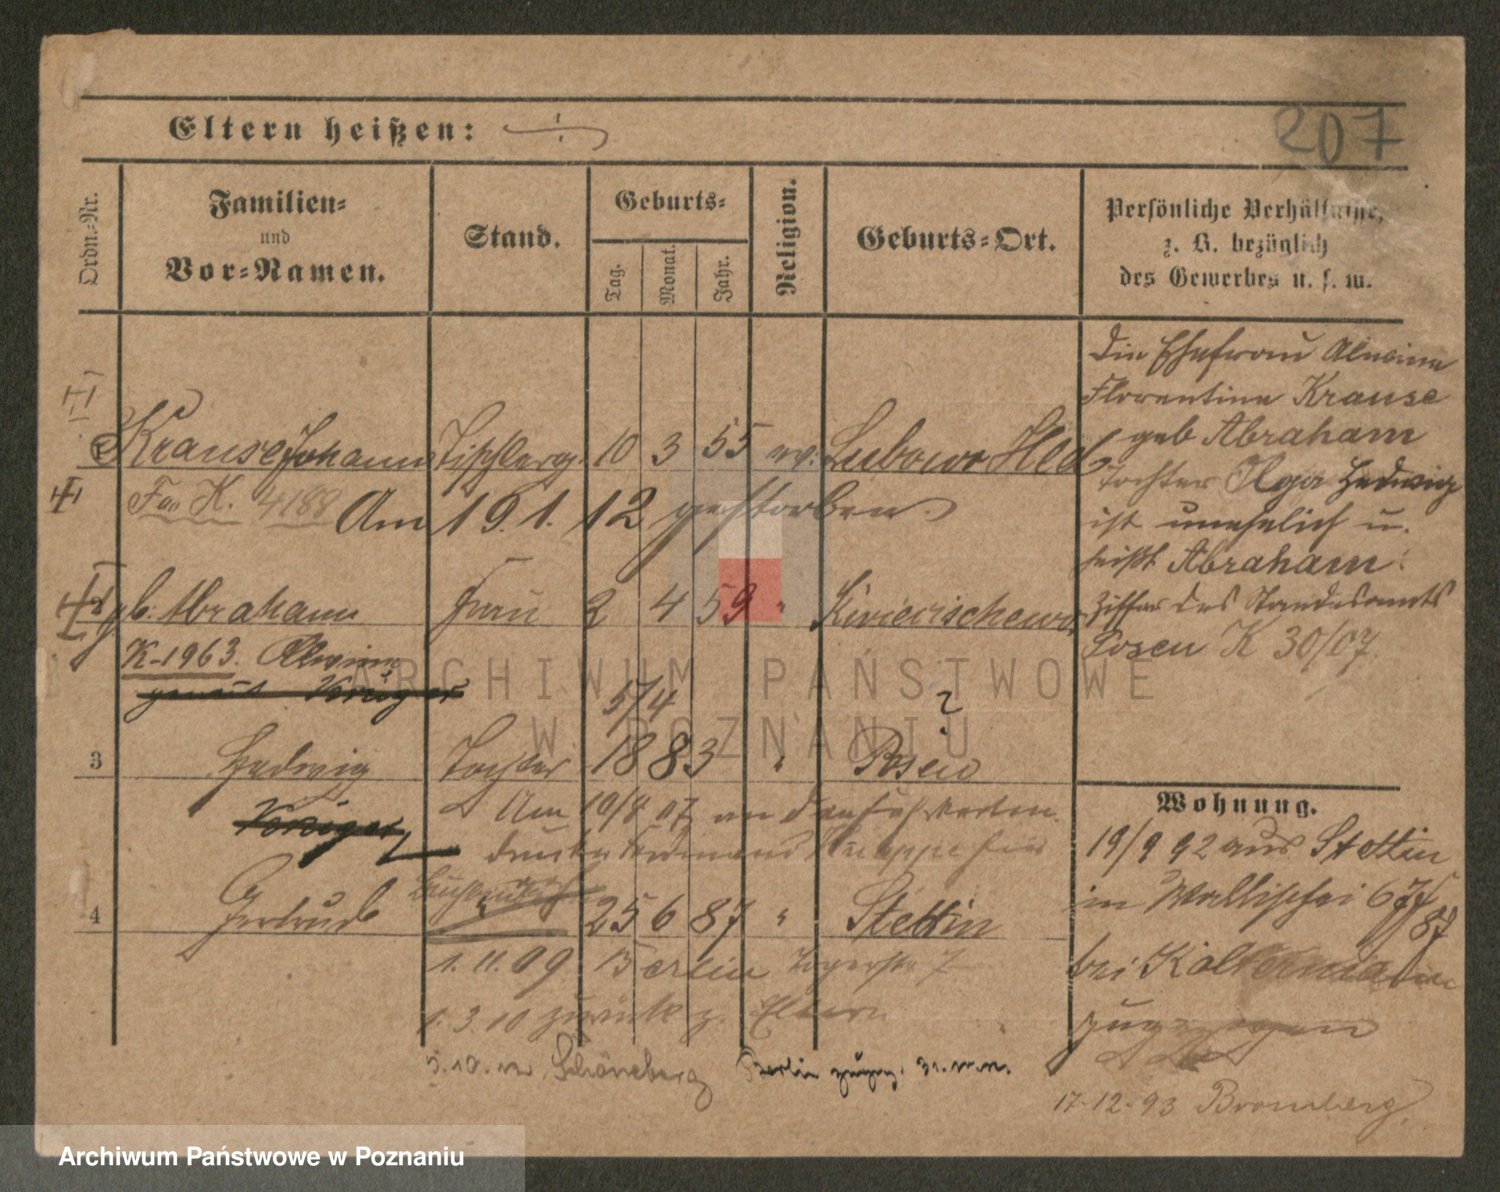 207
Eltern heißen:
Ordn.-Nr.
Familien-
und
Vor-Namen.
Stand.
Geburts-
Tag.
Monat.
Jahr.
Religion.
Geburts-Ort.
Persönliche Verhältnisse,
z. B. bezüglich
des Gewerbes u. s. w.
Krause Johann Tischlerg. 10 3 55 ev. Lubowo Hld
K. 4188 Am 19. 1. 12 gestorben.
gb. Abraham Frau 2 4 59 "
K-1963. Alwine
5/4 ?
3 Hedwig Tochter 1883 " Posen
Am 10/8 07 an den
4 Gertrud " 25 6 87 " Stettin
1. 11. 09 Berlin 7
1. 3. 10 zurück z. Eltern
5. 10. Schöneberg Berlin
Die Ehefrau Alwine
Florentine Krause
geb Abraham
Tochter Olga Hedwig
ist unehelich u.
heißt Abraham.
Ziffer des Standesamts
Posen K 30/07.
Wohnung.
19/9 92 aus Stettin
in Wallischei 67/
87
bei
zugezogen
17-12-93 Bromberg.
ARCHIWUM PAŃSTWOWE
W POZNANIU
Archiwum Państwowe w Poznaniu